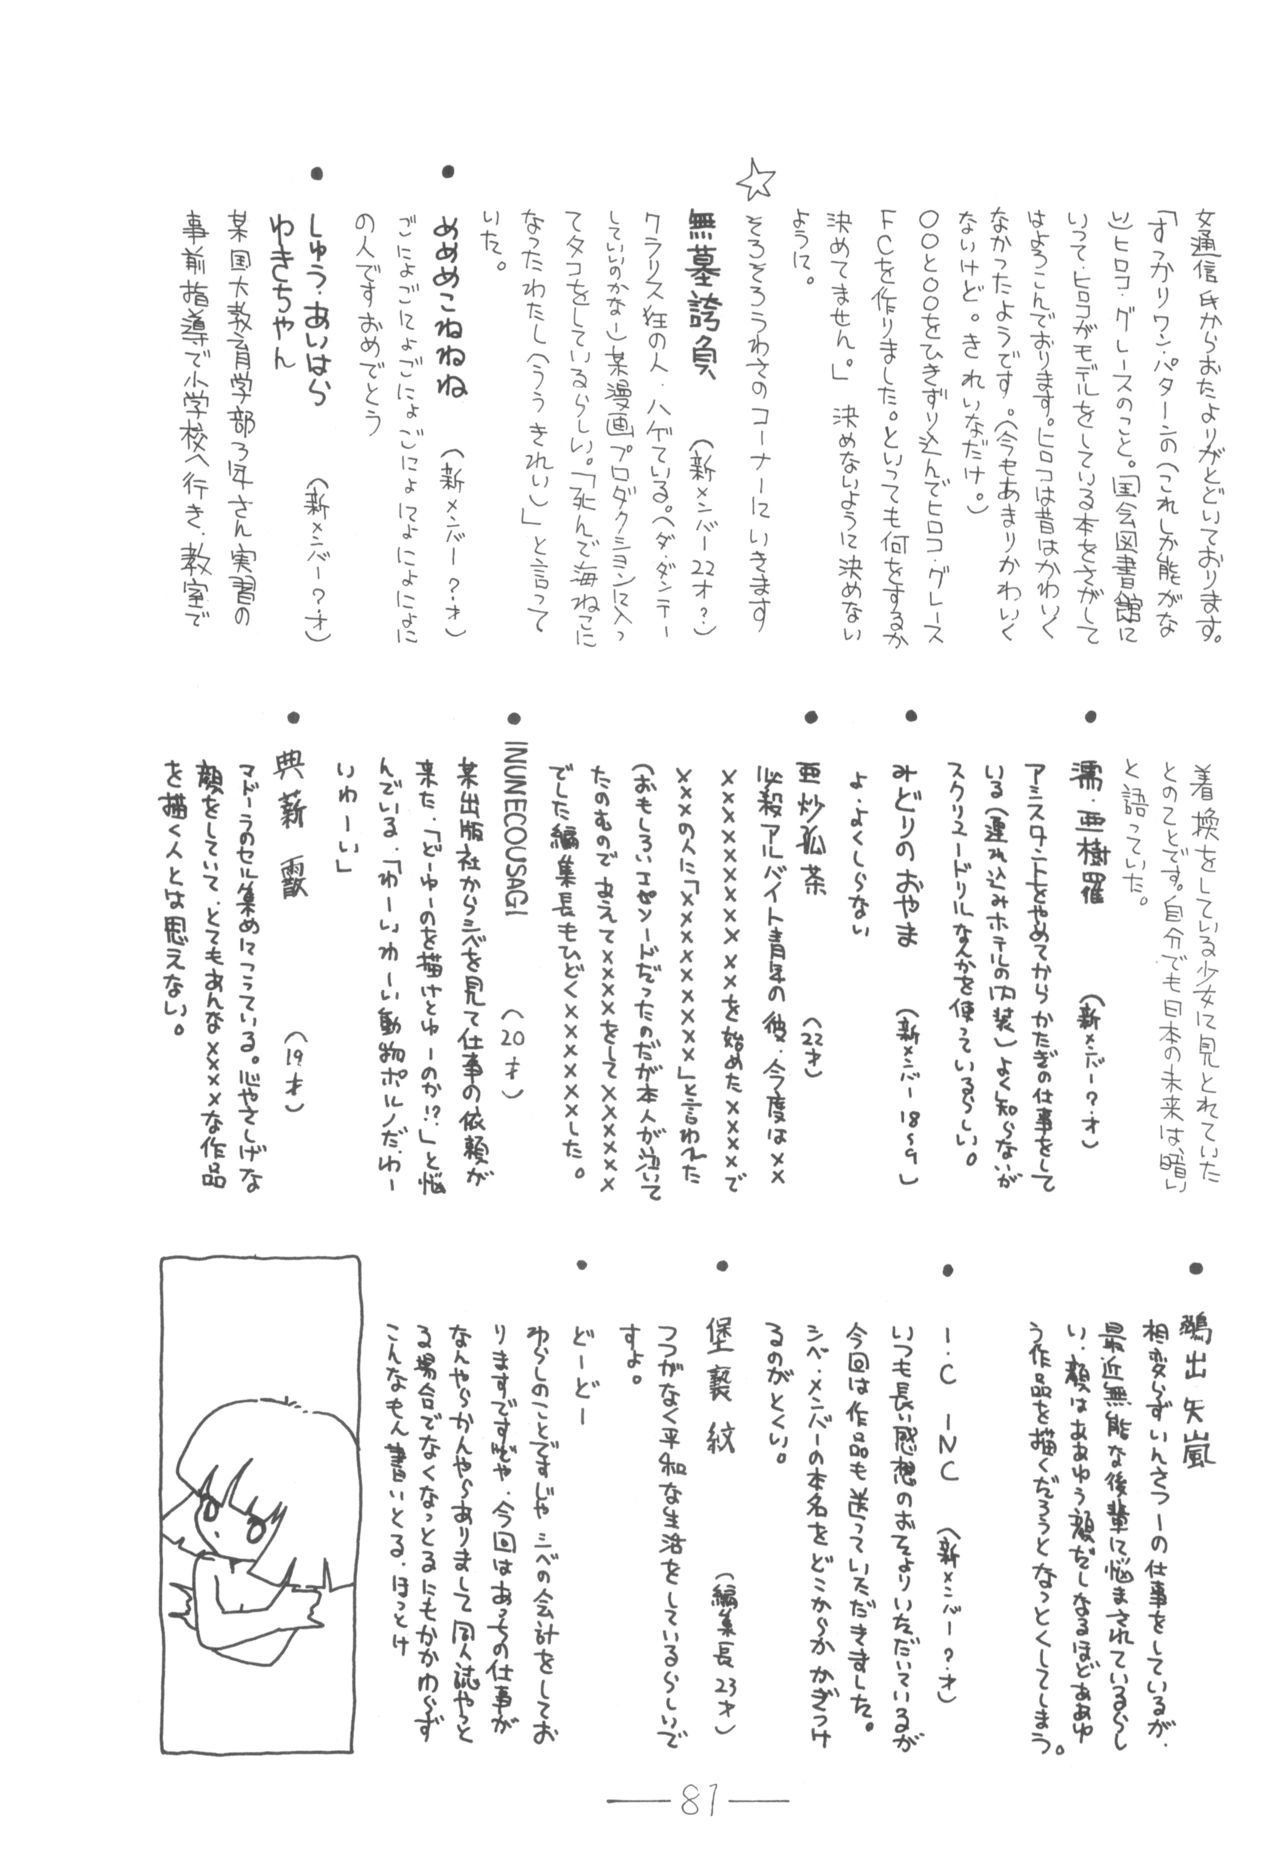 女通信氏からおたよりがとどいております。
「すっかりワンパターンの(これしか能がな
い)ヒロコ・グレースのこと。国会図書館に
いって・ヒロコがモデルをしている本をさがして
はよろこんでおります。ヒロコは昔はかわいく
なかったようです。(今もあまりかわいく
ないけど。きれいなだけ。)
○○と○○をひきずり込んでヒロコ・グレース
FCを作りました。といっても何をするか
決めてません。」決めないように決めない
ように。
☆そろそろうわさのコーナーにいきます
●無墓誇負 (新メンバー22才?)
クラリス狂の人・ハゲている。(ダ・ダンテー
していいのかなー)某漫画プロダクションに入っ
てタコをしているらしい。「死んで海ねこに
なったわたし(ううきれい)」と言って
いた。
●めめめこねねね (新メンバー?・才)
ごにょごにょごにょごにょにょにょにょに
の人ですおめでとう
●しゅう・あいはら
ゆきちゃん (新メンバー?・才)
某国大教育学部3年さん実習の
事前指導で小学校へ行き、教室で
着換をしている少女に見とれていた
とのことです。自分でも日本の未来は「暗い」
と語っていた。
●濡・亜樹羅 (新メンバー?・才)
アシスタントをやめてからかたぎの仕事をして
いる(連れ込みホテルの内装)よく知らないが
スクリュードリルなんかを使っているらしい。
●みどりのおやま (新メンバー18〜9)
よ・よくしらない
●亜炒孤茶 (22才)
必殺アルバイト青年の彼・今度は××
××××××××××を始めた××××で
×××の人に「×××××××××」と言われた
(おもしろいエピソードだったのだが本人が泣いて
たのむのであえて××××をして××××××
でした編集長もひどく×××××××した。
●INUNECOUSAGI (20才)
某出版社からシベを見て仕事の依頼が
来た・「どーゆーのを描けとゆーのか!?」と悩
んでいる・「わーいわーい動物ポルノだ、わー
いわーい」
●典薪 (19才)
マドーラのセル集めにこっている。心やさしげな
顔をしていて、とてもあんな××××な作品
を描く人とは思えない。
●鵺出矢嵐
相変らずいんさつーの仕事をしているが、
最近無能な後輩に悩まされているらし
い・顔はああゆう顔だしなるほどああゆ
う作品を描くだろうとなっとくしてしまう。
●I・C INC (新メンバー?・才)
いつも長い感想のおてよりいただいているが
今回は作品も送っていただきました。
シベ・メンバーの本名をどこからかかぎつけ
るのがとくい。
●堡褻紋 (編集長23才)
つつがなく平和な生活をしているらしいで
すよ。
●どーどー
わらしのことですじゃ シベの会計をしてお
りますですぢゃ・今回はあっちの仕事が
なんやらかんやらありまして同人誌やっと
る場合でなくなっとるにもかかわらず
こんなもん書いとる・ほっとけ
—81—